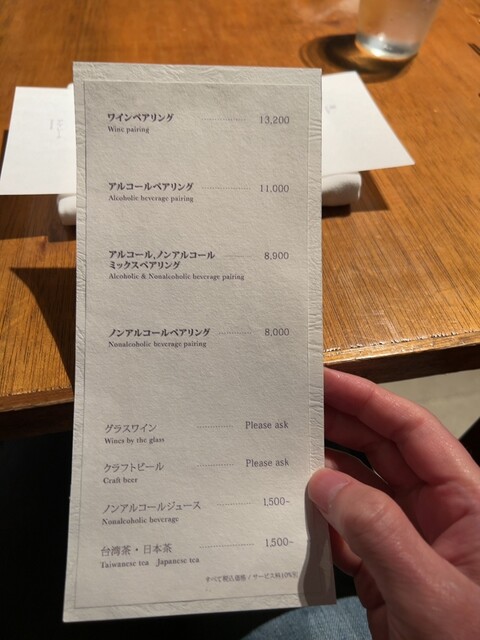 ワインペアリング 13,200
Wine pairing
アルコールペアリング 11,000
Alcoholic beverage pairing
アルコール、ノンアルコール 8,900
ミックスペアリング
Alcoholic & Nonalcoholic beverage pairing
ノンアルコールペアリング 8,000
Nonalcoholic beverage pairing
グラスワイン Please ask
Wines by the glass
クラフトビール Please ask
Craft beer
ノンアルコールジュース 1,500~
Nonalcoholic beverage
台湾茶・日本茶 1,500~
Taiwanese tea Japanese tea
すべて税込価格 / サービス料10%別